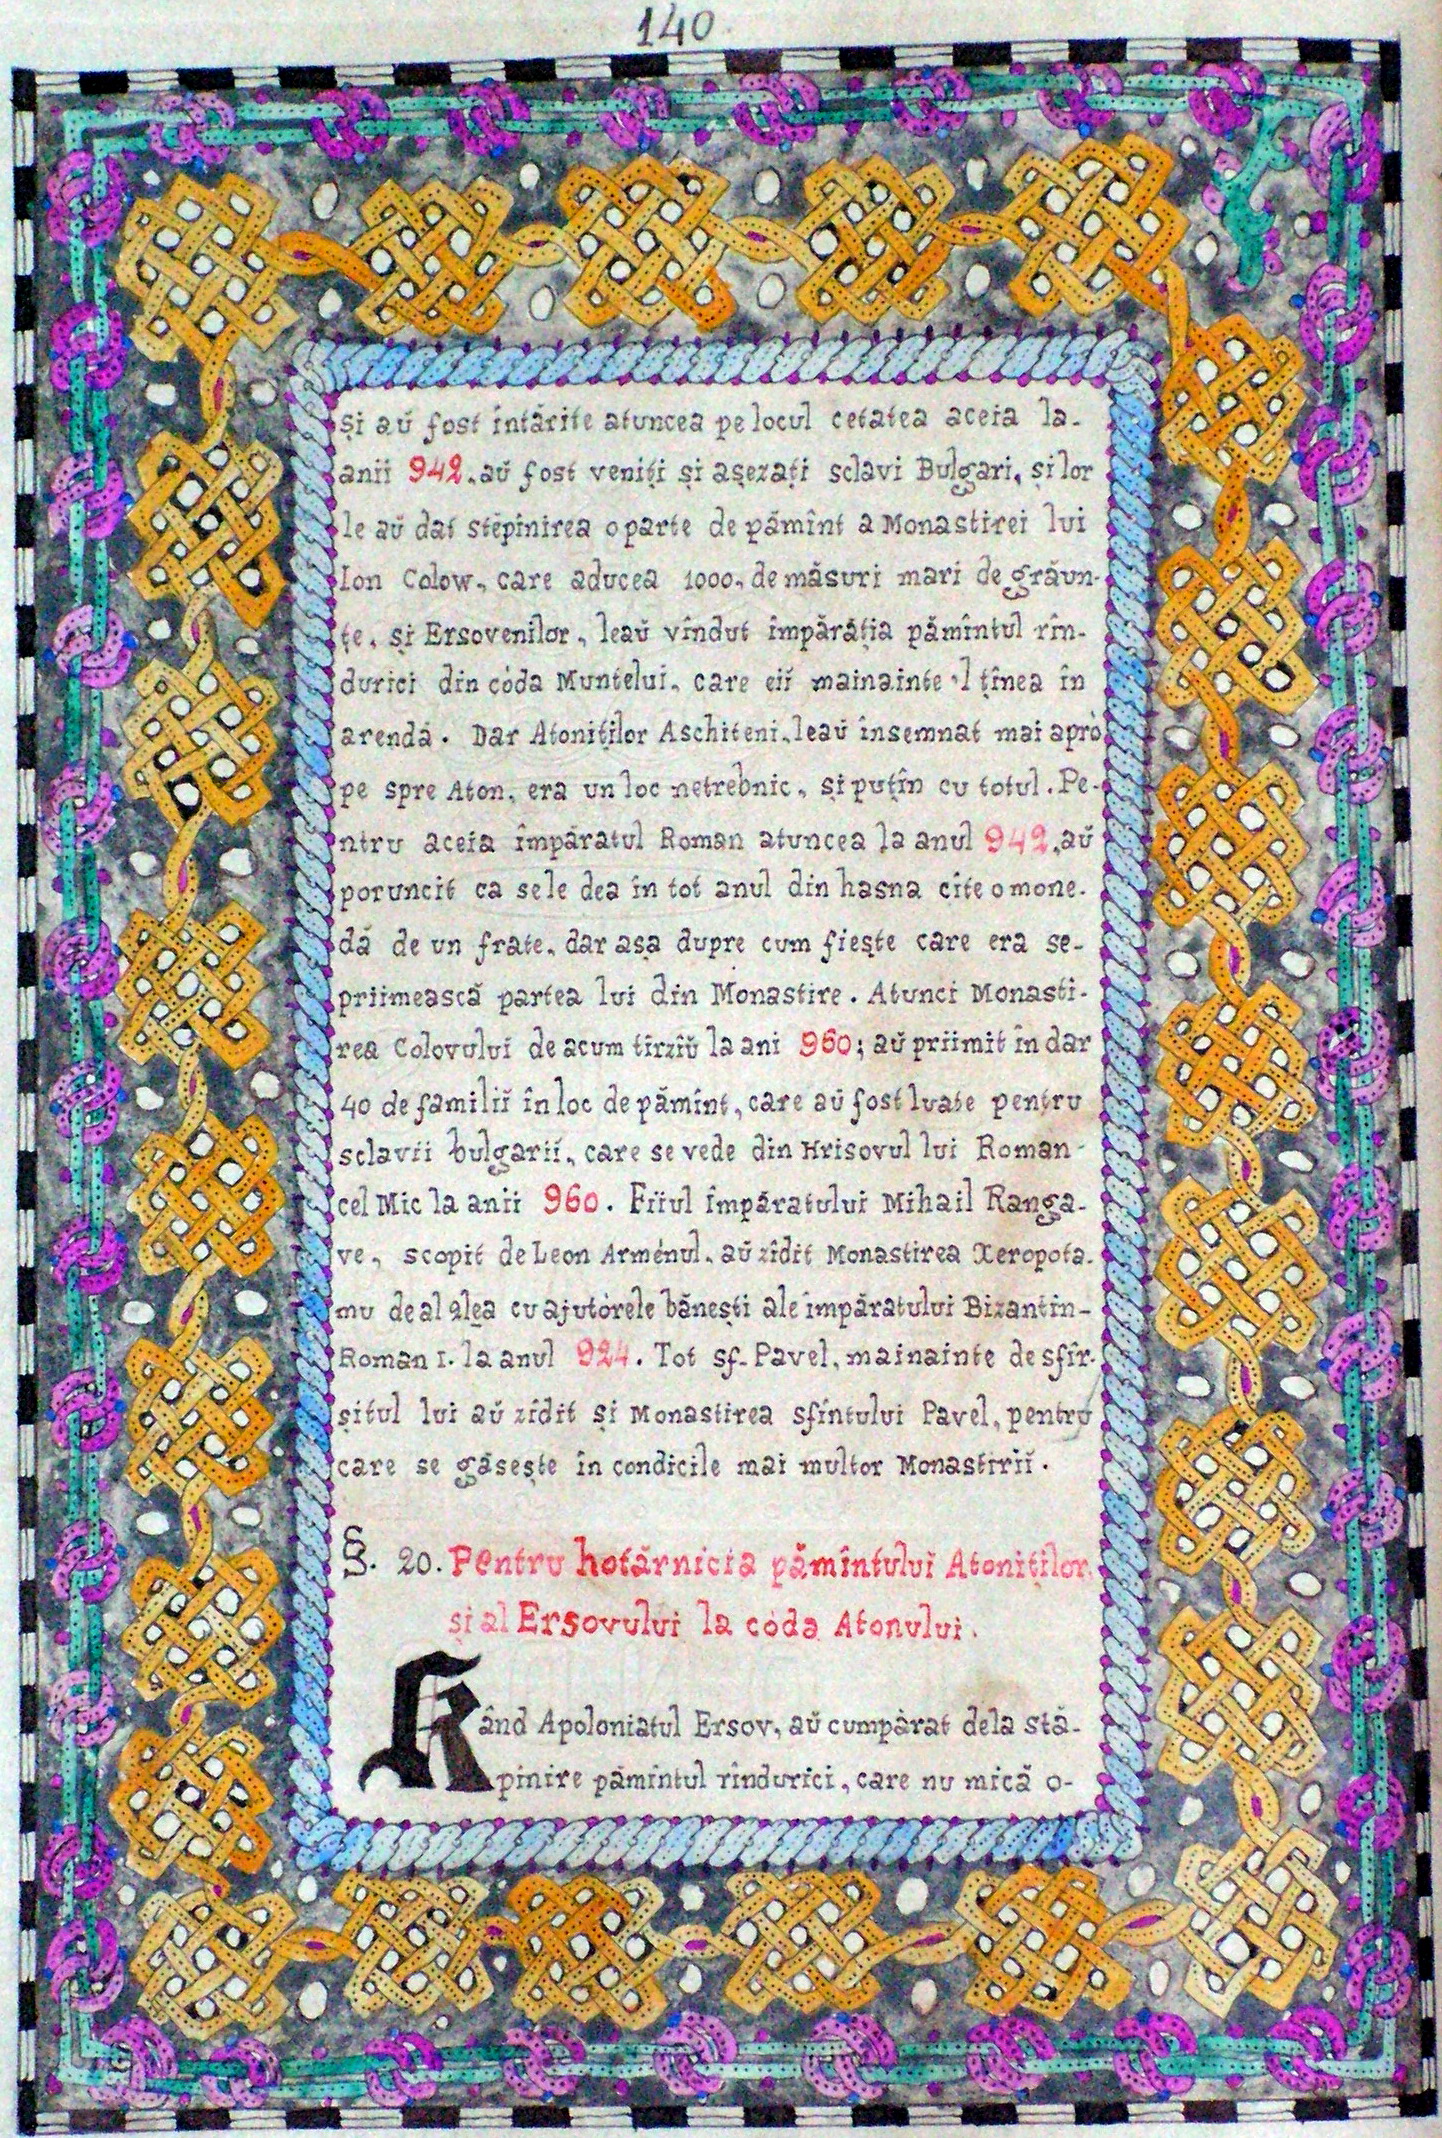 140
și aŭ fost întărite atuncea pe locul cetatea aceia la-
anii 942, aŭ fost veniți și așezați sclavi Bulgari, și lor
le aŭ dat stĕpînirea o parte de pămînt a Monastirei lui
Ion Colow, care aducea 1000, de măsuri mari de grăun-
țe, și Ersovenilor, leaŭ vîndut împărăția pămîntul rîn-
durici din códa Muntelui, care eiĭ mainainte 'l ținea în
arendă. Dar Atoniților Aschiteni, leaŭ însemnat mai apró
pe spre Aton, era un loc netrebnic, și puțîn cu totul. Pe-
ntru aceia împăratul Roman atuncea la anul 942, aŭ
poruncit ca sele dea în tot anul din hasna cîte o mone-
dă de un frate, dar așa dupre cum fiește care era se-
priimească partea lui din Monastire. Atunci Monasti-
rea Colovului de acum tîrzîŭ la ani 960; aŭ priimit în dar
40 de familiĭ în loc de pămînt, care aŭ fost luate pentru
sclavii bulgarii, care se vede din Hrisovul lui Roman-
cel Mic la anii 960. Fiiul împăratului Mihail Ranga-
ve, scopit de Leon Arménul, aŭ zîdit Monastirea Xeropota-
mu de al 2lea cu ajutórele bănești ale împăratului Bizantin-
Roman I. la anul 924. Tot sf. Pavel, mainainte de sfîr-
șitul lui aŭ zîdit și Monastirea sfîntului Pavel, pentru
care se găsește în condicile mai multor Monastiriĭ.
§. 20. Pentru hotărnicia pămîntului Atoniților,
și al Ersovului la códa Atonului.
Kând Apoloniatul Ersov, aŭ cumpărat dela stă-
pînire pămîntul rîndurici, care nu mică o-